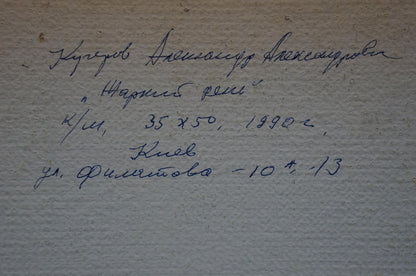 Кучеров Александр Александрович
„Жаркий день"
к/м, 35 х 50, 1990 г,
Киев
ул. Филатова – 10ᴬ, – 13